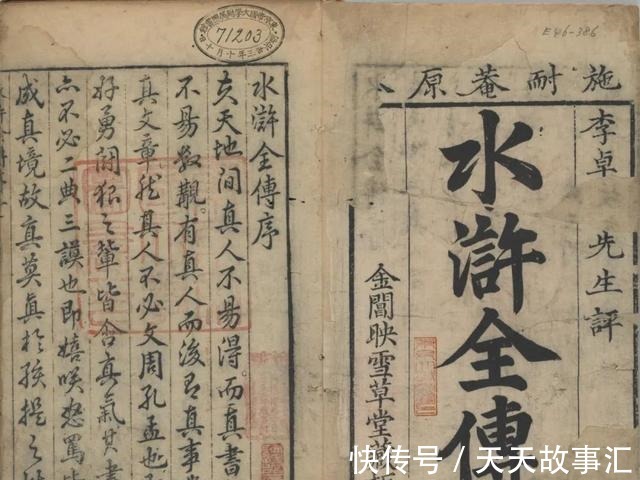 E46-386
施耐菴原
李卓 先生評
水滸全傳
金閶映雪草堂藏
71203
水滸全傳序
夫天地間真人不易得而真書
不易數覯有真人而後有真事
真文章然其人不必文周孔孟也
好勇鬪狠之輩皆含真氣其書
亦不必二典三謨也即嬉咲怒罵
成真境故真莫真於孩提之
快传号 / 天天故事汇